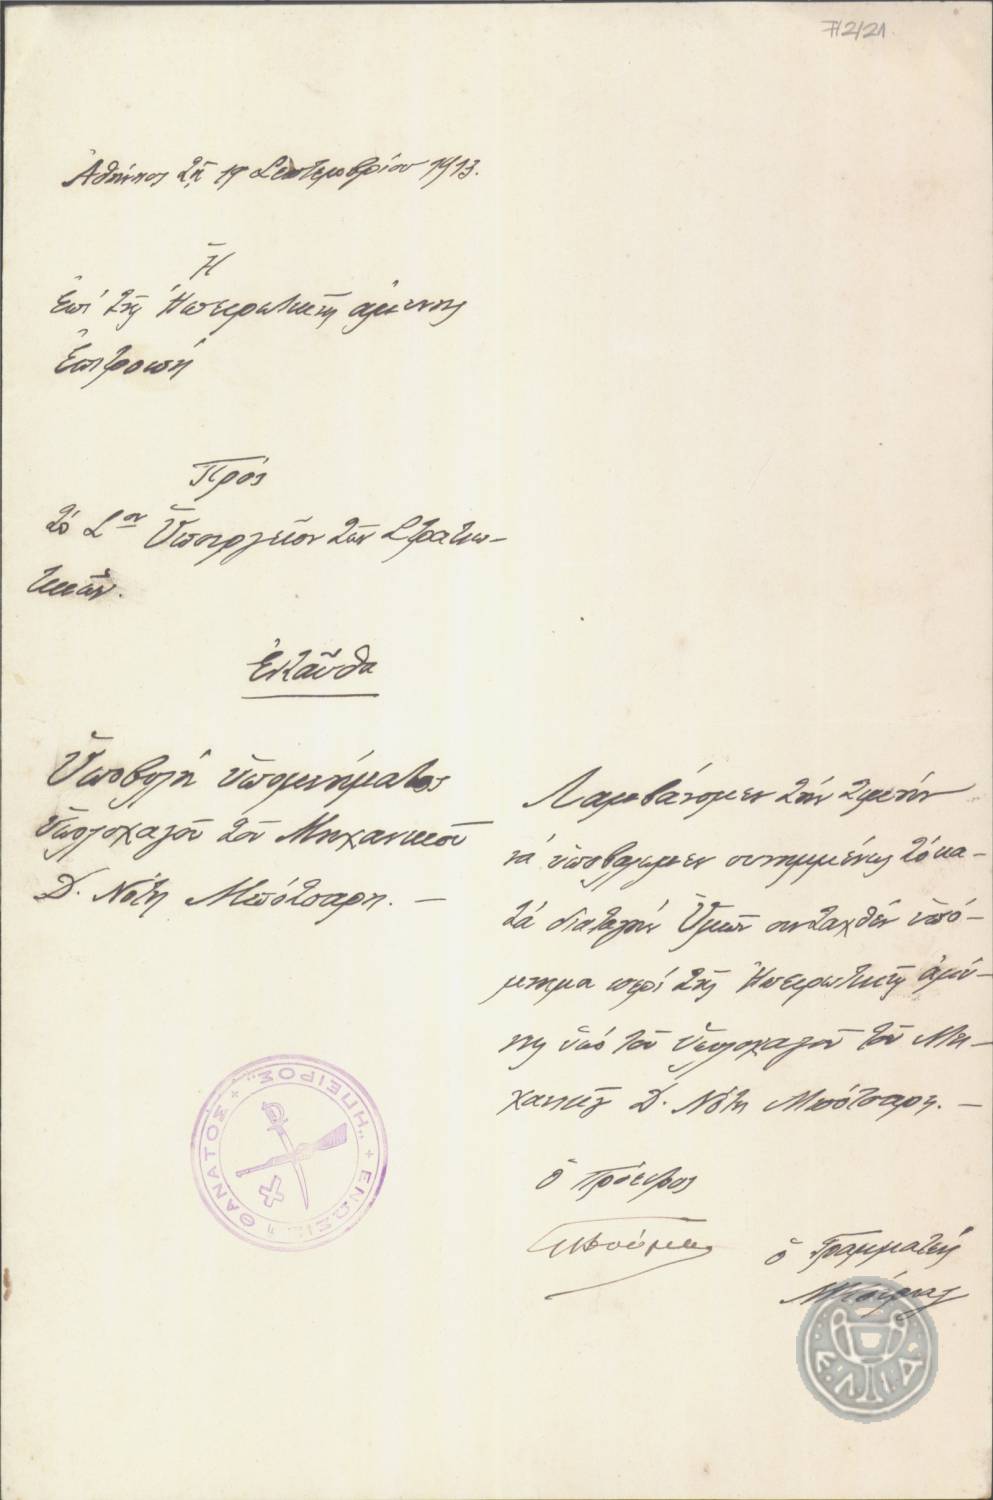 Ἀθήνησι τῇ 19 Σεπτεμβρίου 1913.
Ἡ
Ἐπί τῆς Ἠπειρωτικῆς ἀμύνης
Ἐπιτροπή
Πρός
τό Σ^ον Ὑπουργεῖον τῶν Στρατιω-
τικῶν.
Ἐνταῦθα
Ὑποβολή ὑπομνήματος
ὑπολοχαγοῦ τοῦ Μηχανικοῦ
Δ. Νότη Μπότσαρη. —
Λαμβάνομεν τήν τιμήν
νά ὑποβάλωμεν συνημμένως τό κα-
τά διαταγήν Ὑμῶν συνταχθέν ὑπό-
μνημα περί τῆς Ἠπειρωτικῆς ἀμύ-
νης ὑπό τοῦ ὑπολοχαγοῦ τοῦ Μη-
χανικοῦ Δ. Νότη Μπότσαρη. —
ὁ Πρόεδρος
ὁ Γραμματεύς
"ΗΠΕΙΡΟΣ" + ΕΝΩΣΙΣ Ἢ ΘΑΝΑΤΟΣ +
Ε.Λ.Ι.Α